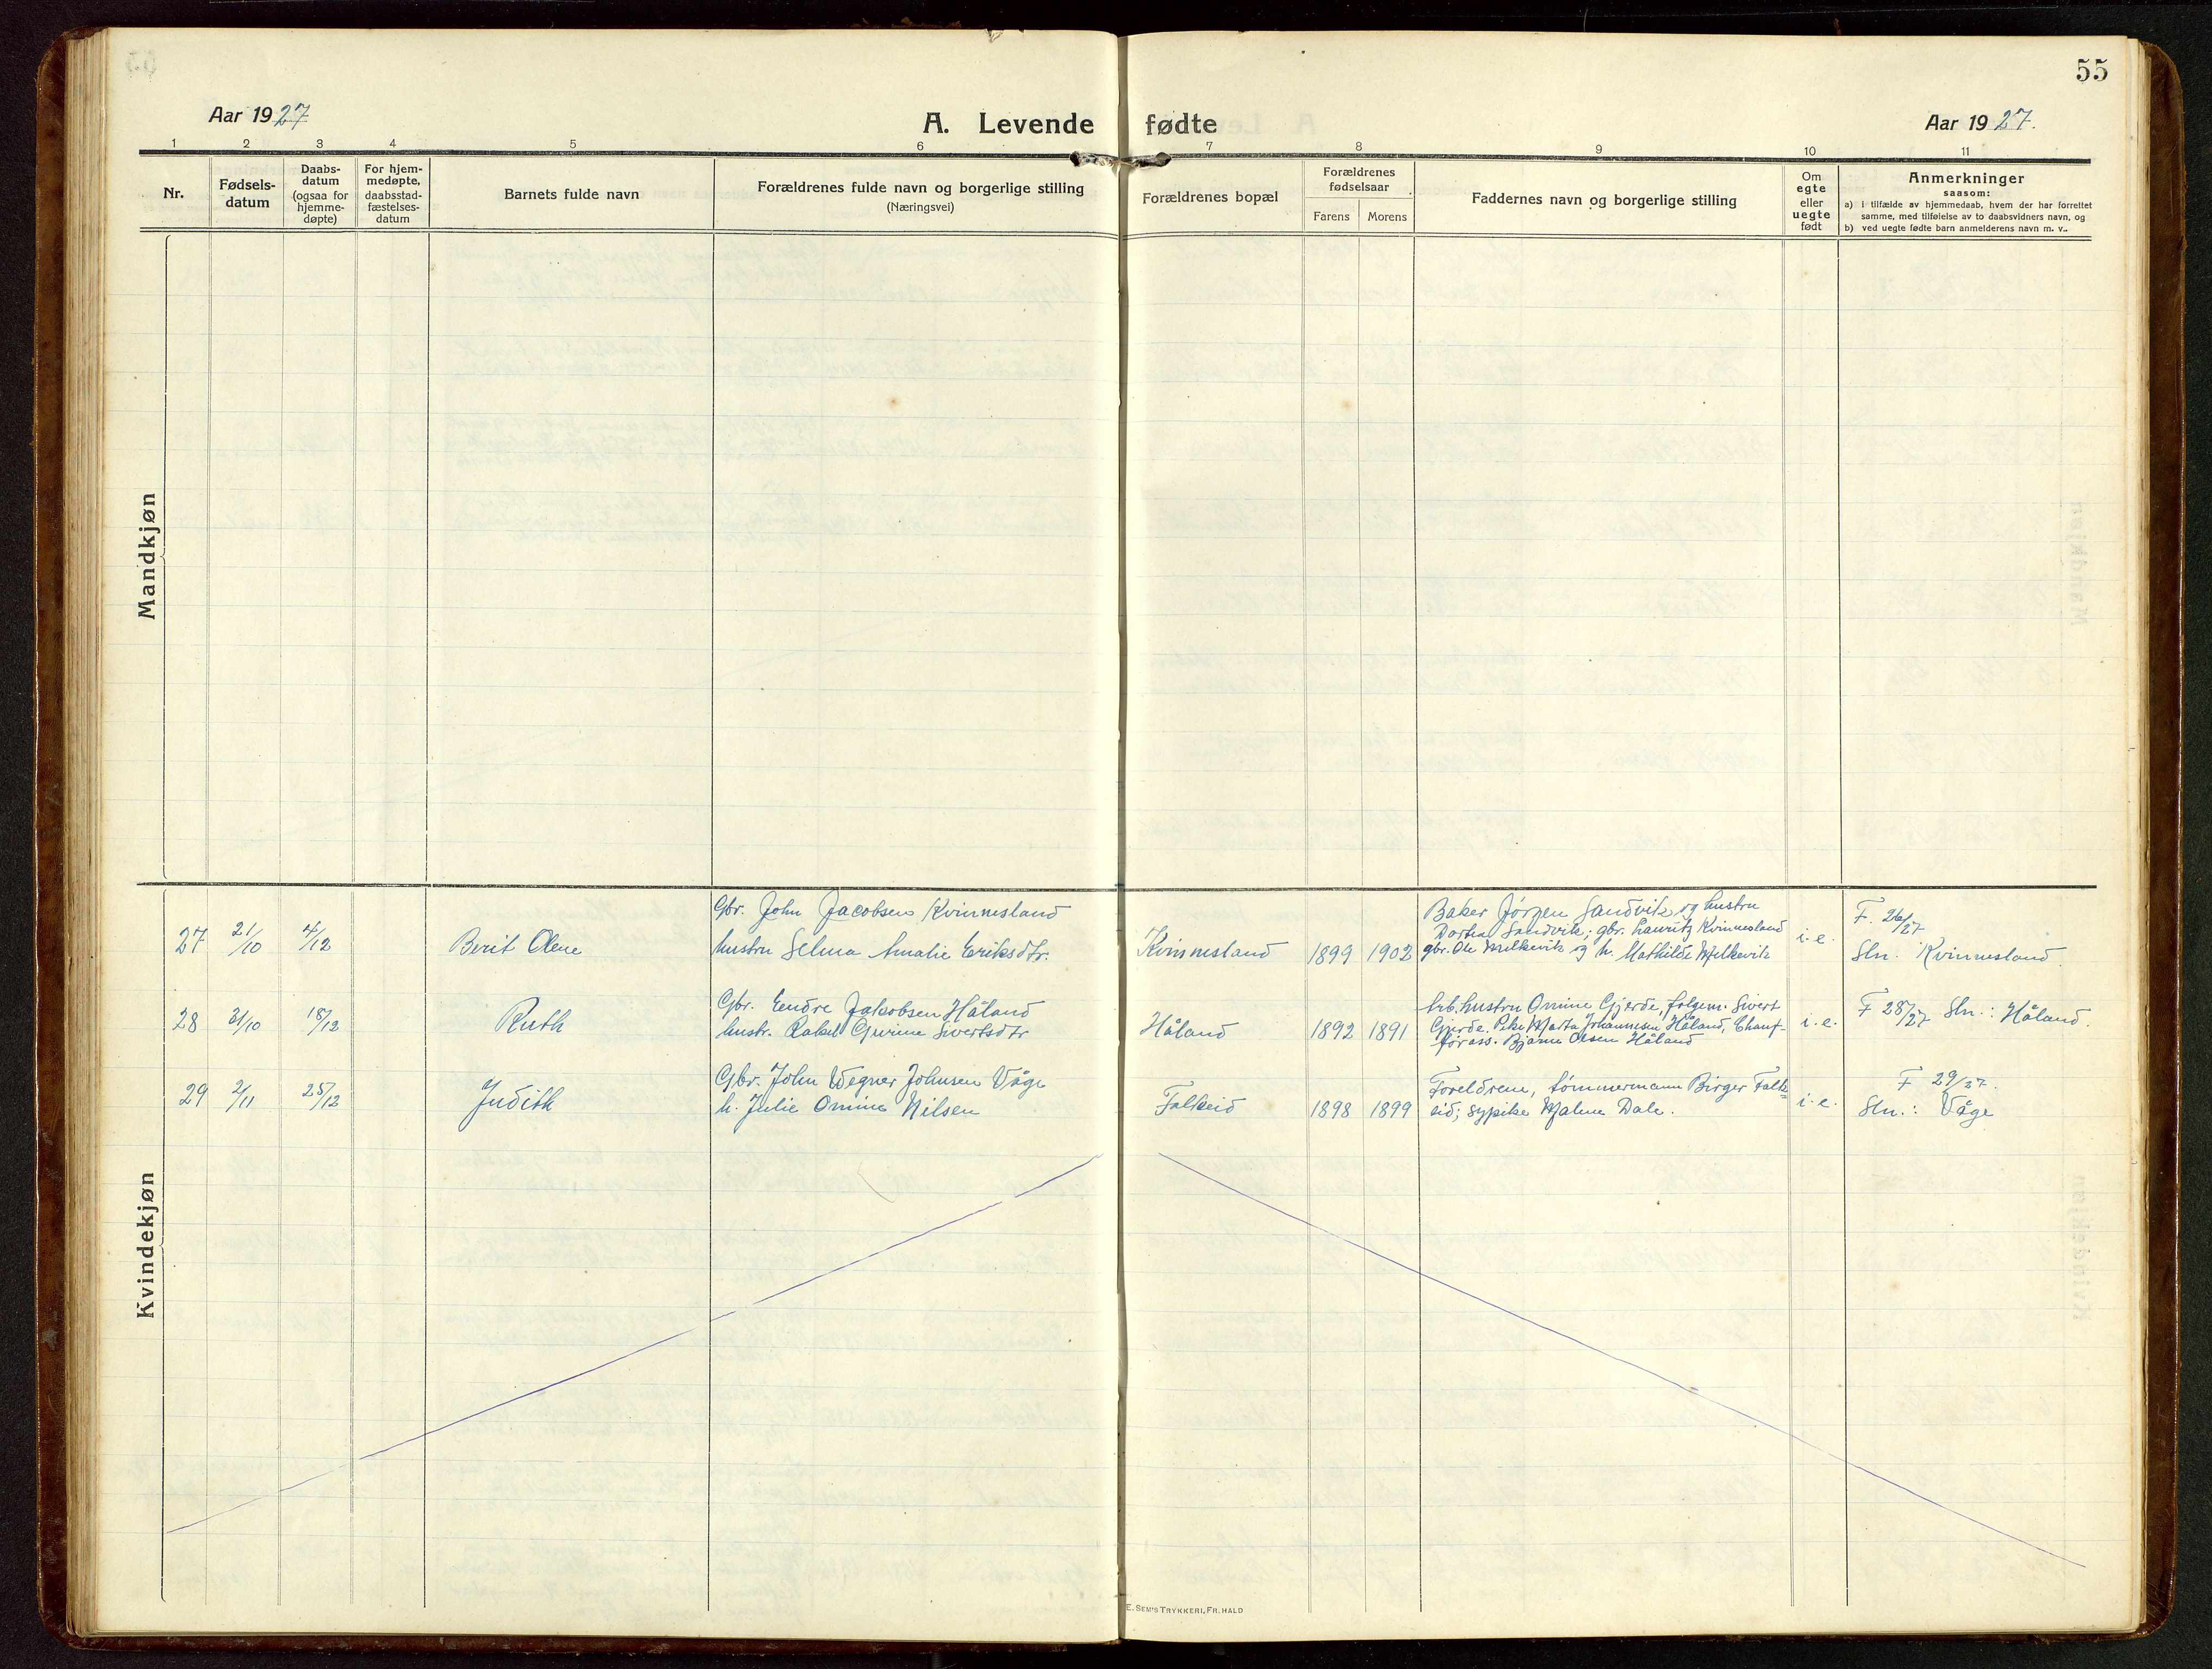 55
Aar 1927
A. Levende fødte
Aar 1927.
1 2 3 4 5 6 7 8 9 10 11
Nr.
Fødsels-
datum
Daabs-
datum
(ogsaa for
hjemme-
døpte)
For hjem-
medøpte,
daabsstad-
fæstelses-
datum
Barnets fulde navn
Forældrenes fulde navn og borgerlige stilling
(Næringsvei)
Forældrenes bopæl
Forældrenes
fødselsaar
Farens Morens
Faddernes navn og borgerlige stilling
Om
egte
eller
uegte
født
Anmerkninger
saasom:
a) i tilfælde av hjemmedaab, hvem der har forrettet
samme, med tilføielse av to daabsvidners navn, og
b) ved uegte fødte barn anmelderens navn m. v..
Mandkjøn
Kvindekjøn
27 21/10 4/12 Berit Olene
Gbr. John Jacobsen Kvinnesland
hustru Selma Amalie Eriksdtr.
Kvinnesland 1899 1902
Baker Jørgen Sandvik og hustru
Dorthea Sandvik; gbr. Lauritz Kvinnesland
gbr. Ole Melkevik og h. Mathilde Melkevik
i. e.
F. 26/27
Sln. Kvinnesland.
28 31/10 18/12 Ruth
Gbr. Endre Jakobsen Håland
hustr. Rakel Gurine Sivertsdtr
Håland 1892 1891
hustru Omine Gjerde, Sivert
Gjerde. Pike Marta Johannesen Håland, Chauf-
førass. Bjarne Olsen Håland
i. e.
F 28/27 Sln.: Håland.
29 2/11 25/12 Judith
Gbr. John Wegner Johnsen Våge
h. Julie Omine Nilsen
Falkeid 1898 1899
Foreldrene, tømmermann Birger Falk-
eid; sypike Malene Dale.
i. e.
F 29/27.
Sln.: Våge
E. SEM'S TRYKKERI, FR. HALD